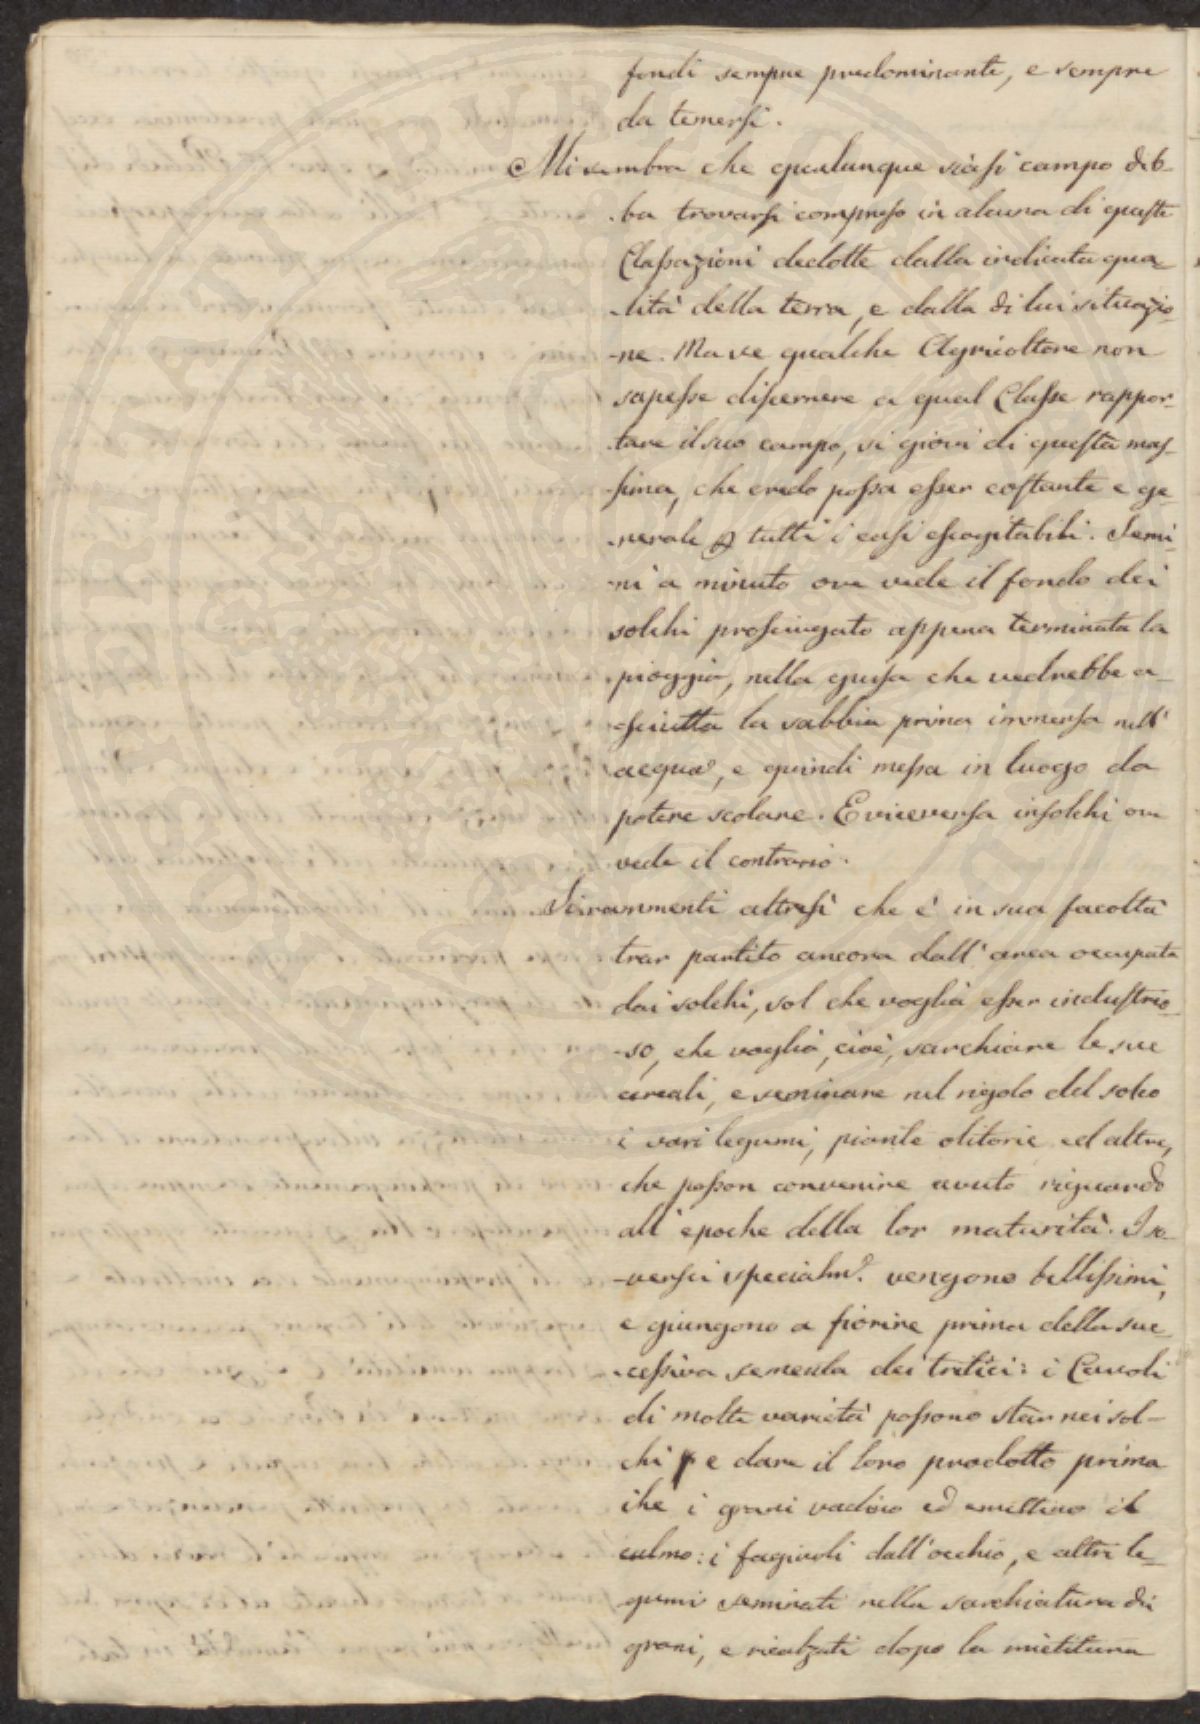 fondi sempre predominante, e sempre
da temersi.
Mi sembra che qualunque siasi campo deb-
-ba trovarsi compreso in alcuna di queste
Classazioni dedotte dalla indicata qua-
-lità della terra, e dalla di lui situazio-
-ne. Ma se qualche Agricoltore non
sapesse discernere a qual Classe rappor-
-tare il suo campo, si giovi di questa mas-
-sima, che credo possa esser costante e ge-
-nerale p tutti i casi escogitabili. Semi-
-ni a minuto ove vede il fondo dei
solchi prosciugato appena terminata la
pioggia, nella guisa che vedrebbe a-
-sciutta la sabbia prima immersa nell'
acqua, e quindi messa in luogo da
potere scolare. E viceversa insolchi ove
vede il contrario.
Si rammenti altresì che è in sua facoltà
trar partito ancora dall'area occupata
dai solchi, sol che voglia esser industrio-
-so, che voglia, cioè, sarchiare le sue
cereali, e seminare nel rigolo del solco
i vari legumi, piante olitorie ed altre,
che posson convenire avuto riguardo
all'epoche della lor maturità. I ro-
-vesci specialm.e vengono bellissimi,
e giungono a fiorire prima della suc-
-cessiva sementa dei tritici: i Cavoli
di molte varietà possono star nei sol-
chi e dare il loro prodotto prima
che i grani vadino ed emettino il
culmo: i fagiuoli dall'occhio, e altri le-
gumi seminati nella sarchiatura dei
grani, e ricalzati dopo la mietitura